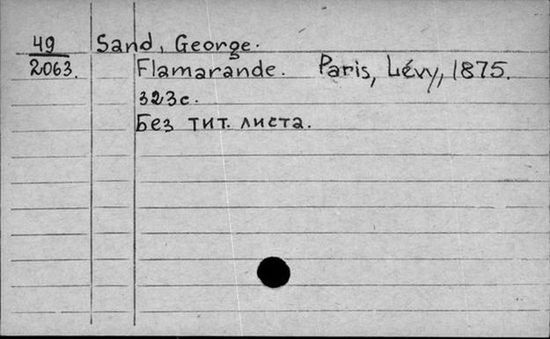 49 Sand, George.
2063. Flamarande. Paris, Lévy, 1875.
323с.
Без тит. листа.